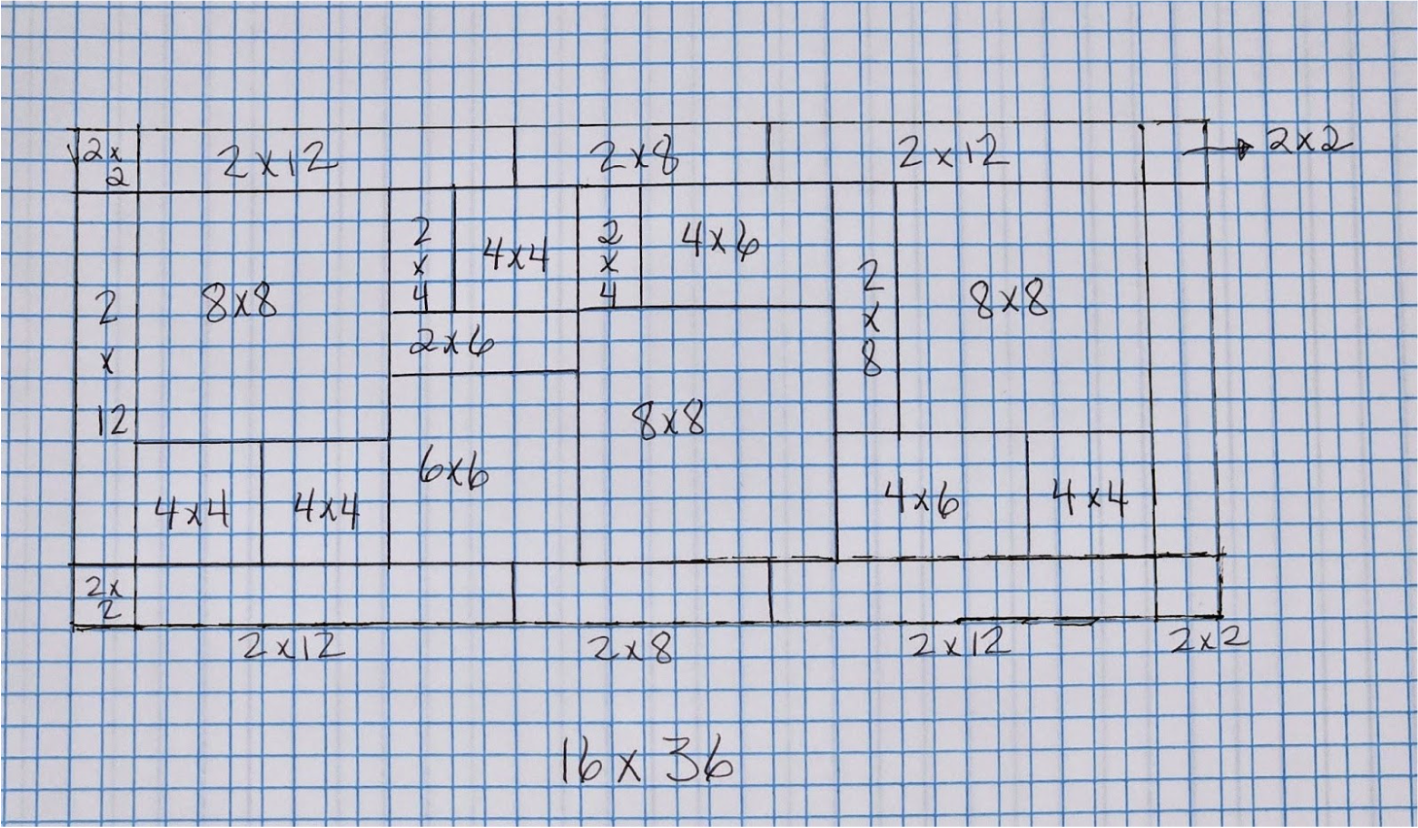 2x
2
2x12
2x8
2x12
2x2
2
x
12
8x8
2
x
4
4x4
2
x
4
4x6
2
x
8
8x8
2x6
8x8
6x6
4x4
4x4
4x6
4x4
2x
2
2x12
2x8
2x12
2x2
16x36